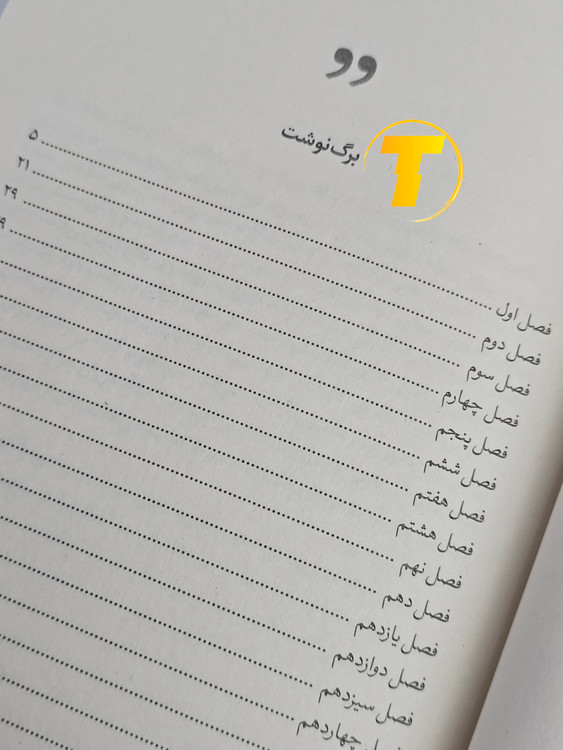 برگ‌نوشت
فصل اول ........ ۵
فصل دوم ........ ۲۱
فصل سوم ........ ۲۹
فصل چهارم
فصل پنجم
فصل ششم
فصل هفتم
فصل هشتم
فصل نهم
فصل دهم
فصل یازدهم
فصل دوازدهم
فصل سیزدهم
فصل چهاردهم